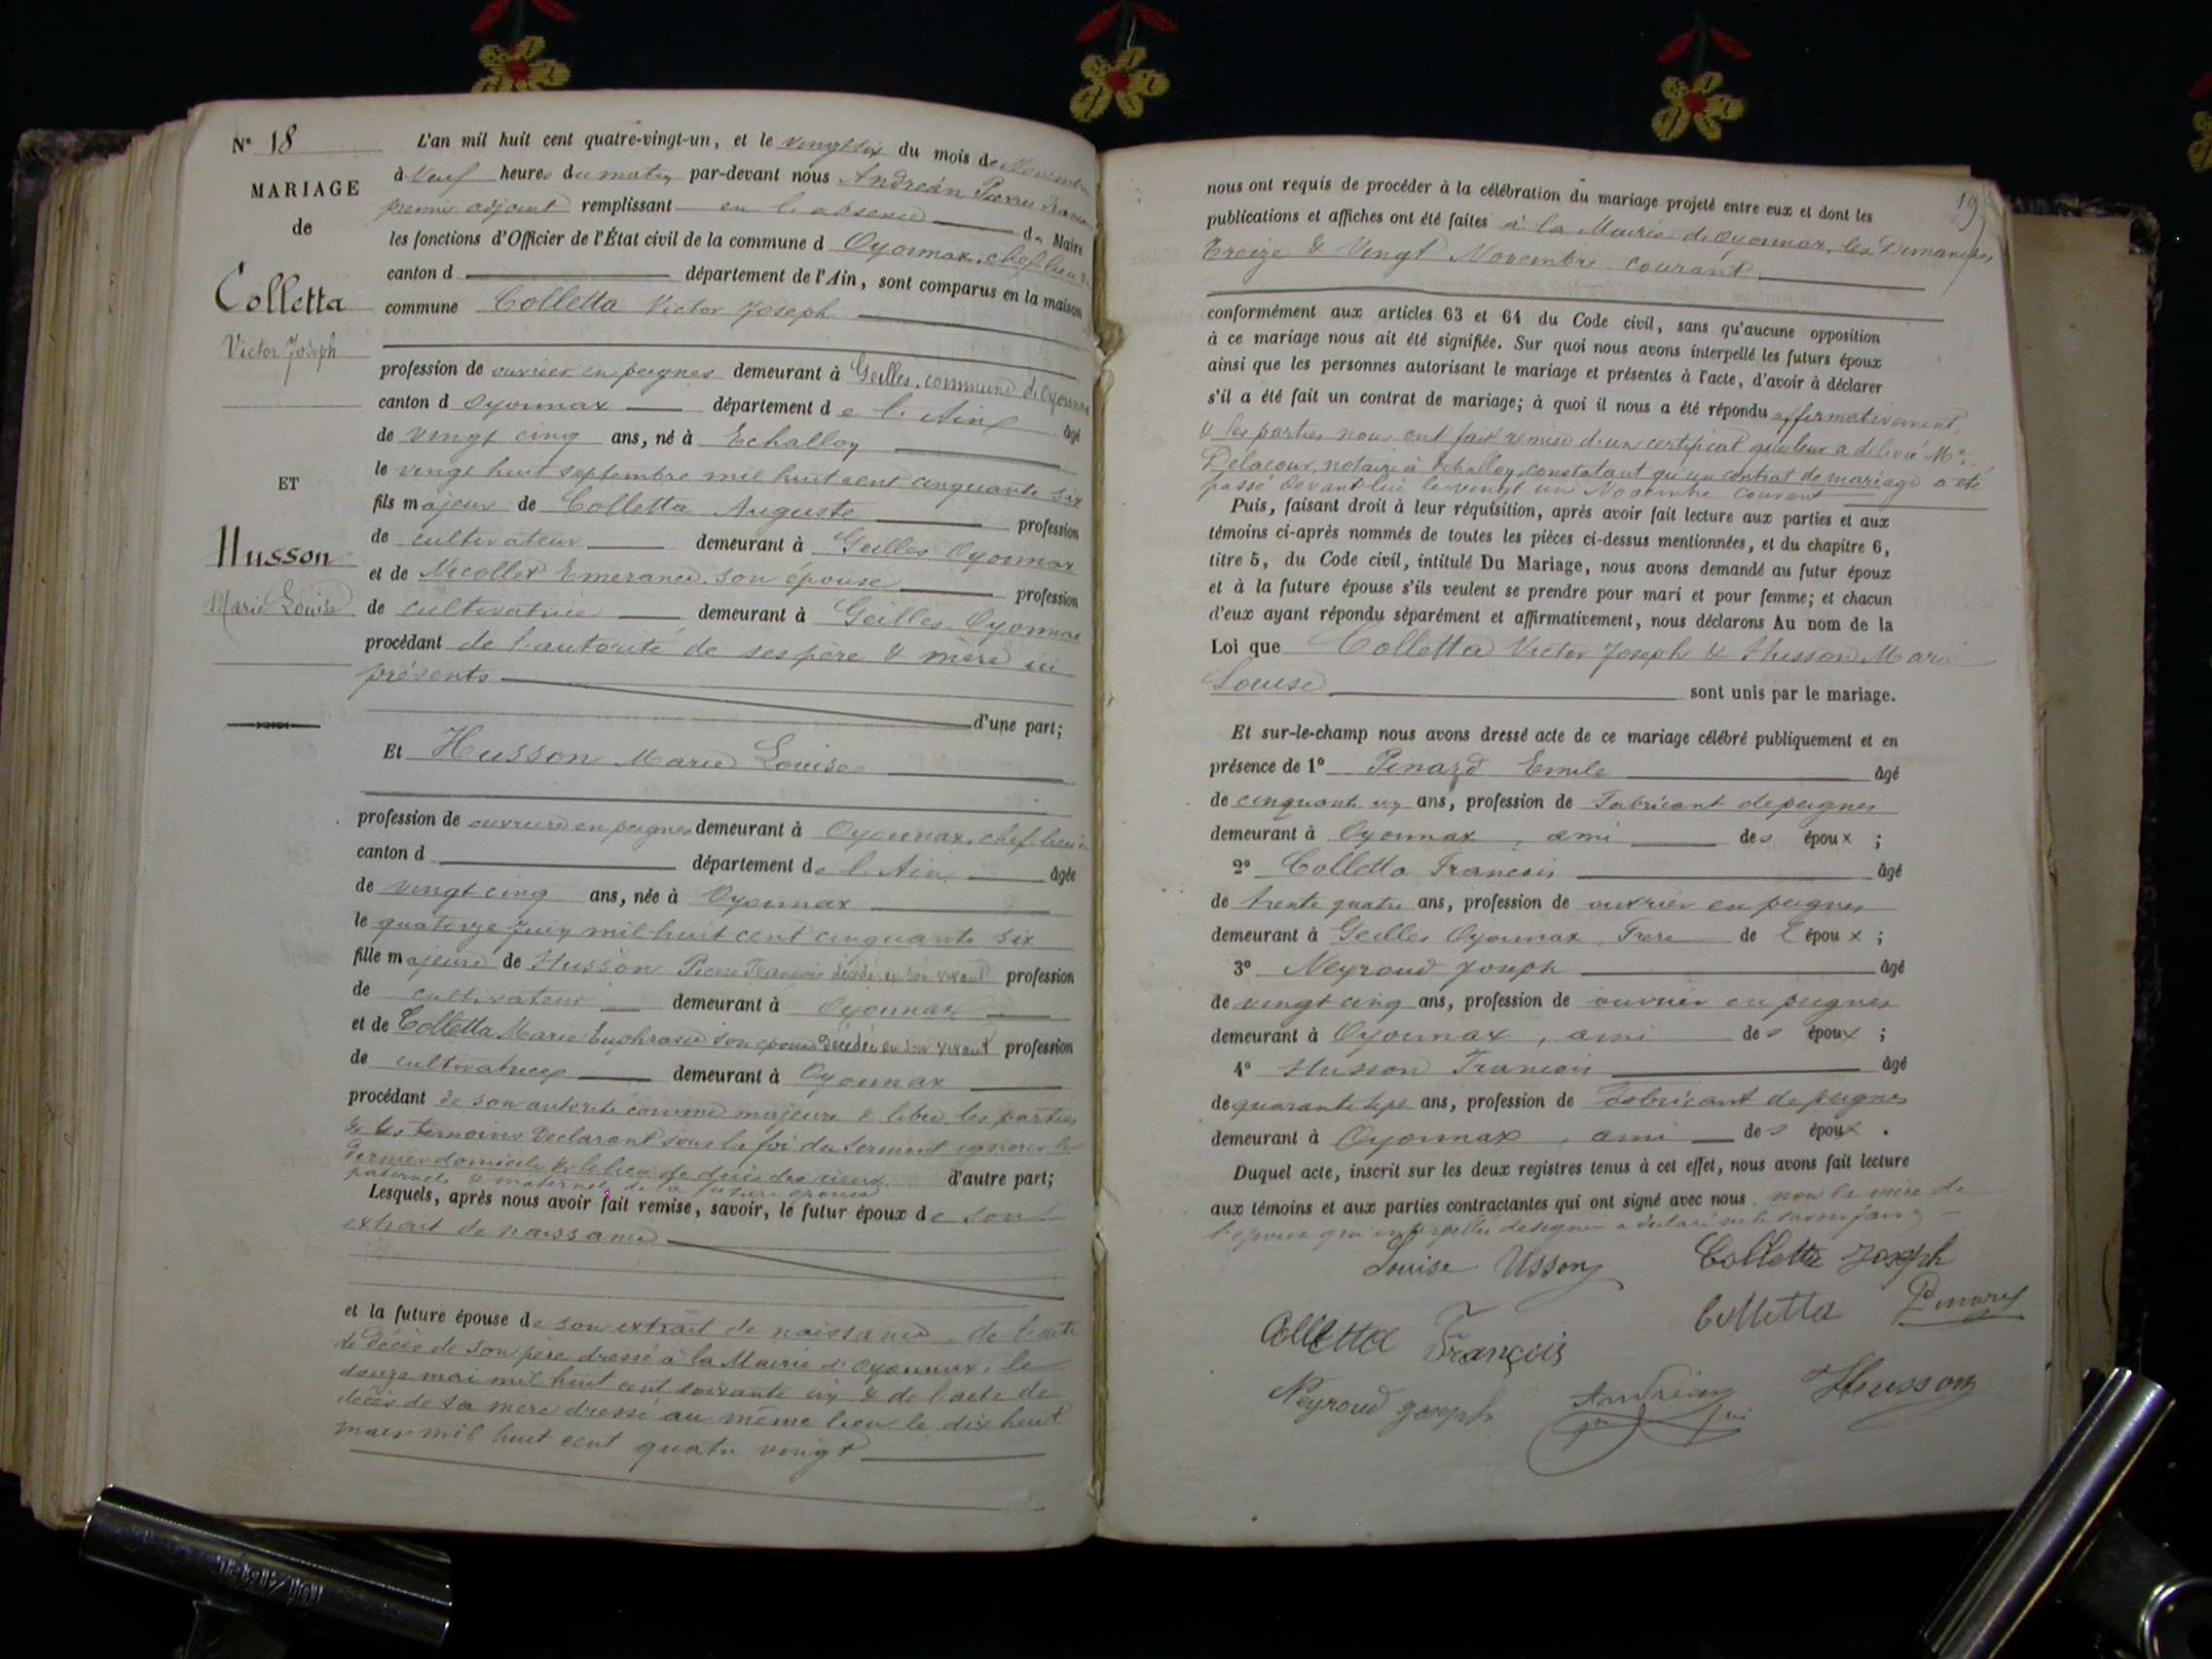 N° 18
MARIAGE
de
Colletta
Victor Joseph
ET
Husson
Marie Louise
L'an mil huit cent quatre-vingt-un, et le vingt six du mois de Novembre
à Neuf heures du matin par-devant nous Andréan Pierre François
premier adjoint remplissant en l'absence du Maire
les fonctions d'Officier de l'État civil de la commune d Oyonnax, chef lieu de
canton d département de l'Ain, sont comparus en la maison
commune Colletta Victor Joseph
profession de ouvrier en peignes demeurant à Geilles, commune d'Oyonnax
canton d Oyonnax département de l'Ain âgé
de vingt cinq ans, né à Echallon
le vingt huit septembre mil huit cent cinquante six
fils majeur de Colletta Auguste profession
de cultivateur demeurant à Geilles Oyonnax
et de Nicollet Emerance son épouse profession
de cultivatrice demeurant à Geilles Oyonnax
procédant de l'autorité de ses père & mère ici
présents
d'une part;
Et Husson Marie Louise
profession de ouvrière en peignes demeurant à Oyonnax, chef lieu de
canton d département de l'Ain âgée
de vingt cinq ans, née à Oyonnax
le quatorze Juin mil huit cent cinquante six
fille majeure de Husson Pierre François décédé, en son vivant profession
de cultivateur demeurant à Oyonnax
et de Colletta Marie Euphrasie son épouse Décédée en son vivant profession
de cultivatrice demeurant à Oyonnax
procédant de son autorité comme majeure & libre, les parties
& les témoins Déclarant sous la foi du serment ignorer le
dernier domicile & le lieu de décès des aieux d'autre part;
paternels & maternels de la future épouse
Lesquels, après nous avoir fait remise, savoir, le futur époux de son
extrait de naissance
et la future épouse de son extrait de naissance, de l'acte
de Décès de son père dressé à la Mairie d'Oyonnax, le
douze mai mil huit cent soixante un & de l'acte de
décès de sa mère dressé au même lieu le dix huit
mars mil huit cent quatre vingt
19
nous ont requis de procéder à la célébration du mariage projeté entre eux et dont les
publications et affiches ont été faites à la Mairie d'Oyonnax, les Dimanches
Treize & Vingt Novembre courant
conformément aux articles 63 et 64 du Code civil, sans qu'aucune opposition
à ce mariage nous ait été signifiée. Sur quoi nous avons interpellé les futurs époux
ainsi que les personnes autorisant le mariage et présentes à l'acte, d'avoir à déclarer
s'il a été fait un contrat de mariage; à quoi il nous a été répondu affirmativement.
& les parties nous ont fait remise d'un certificat que leur a délivré Me
Delacour, notaire à Echallon, constatant qu'un contrat de mariage a été
passé devant lui le vingt un Novembre courant
Puis, faisant droit à leur réquisition, après avoir fait lecture aux parties et aux
témoins ci-après nommés de toutes les pièces ci-dessus mentionnées, et du chapitre 6,
titre 5, du Code civil, intitulé Du Mariage, nous avons demandé au futur époux
et à la future épouse s'ils veulent se prendre pour mari et pour femme; et chacun
d'eux ayant répondu séparément et affirmativement, nous déclarons Au nom de la
Loi que Colletta Victor Joseph & Husson Marie
Louise sont unis par le mariage.
Et sur-le-champ nous avons dressé acte de ce mariage célébré publiquement et en
présence de 1° Penard Emile âgé
de cinquante un ans, profession de Fabricant de peignes
demeurant à Oyonnax, ami des époux ;
2° Colletta François âgé
de trente quatre ans, profession de ouvrier en peignes
demeurant à Geilles Oyonnax, Frère de l'époux ;
3° Neyroud Joseph âgé
de vingt cinq ans, profession de ouvrier en peignes
demeurant à Oyonnax, ami des époux ;
4° Husson François âgé
de quarante sept ans, profession de Fabricant de peignes
demeurant à Oyonnax, ami des époux.
Duquel acte, inscrit sur les deux registres tenus à cet effet, nous avons fait lecture
aux témoins et aux parties contractantes qui ont signé avec nous. non la mère de
l'époux qui interpellée de signer a déclaré ne le savoir faire
Louise Usson Colletta Joseph
Colletta François Colletta
Neyroud Joseph Andréan Husson